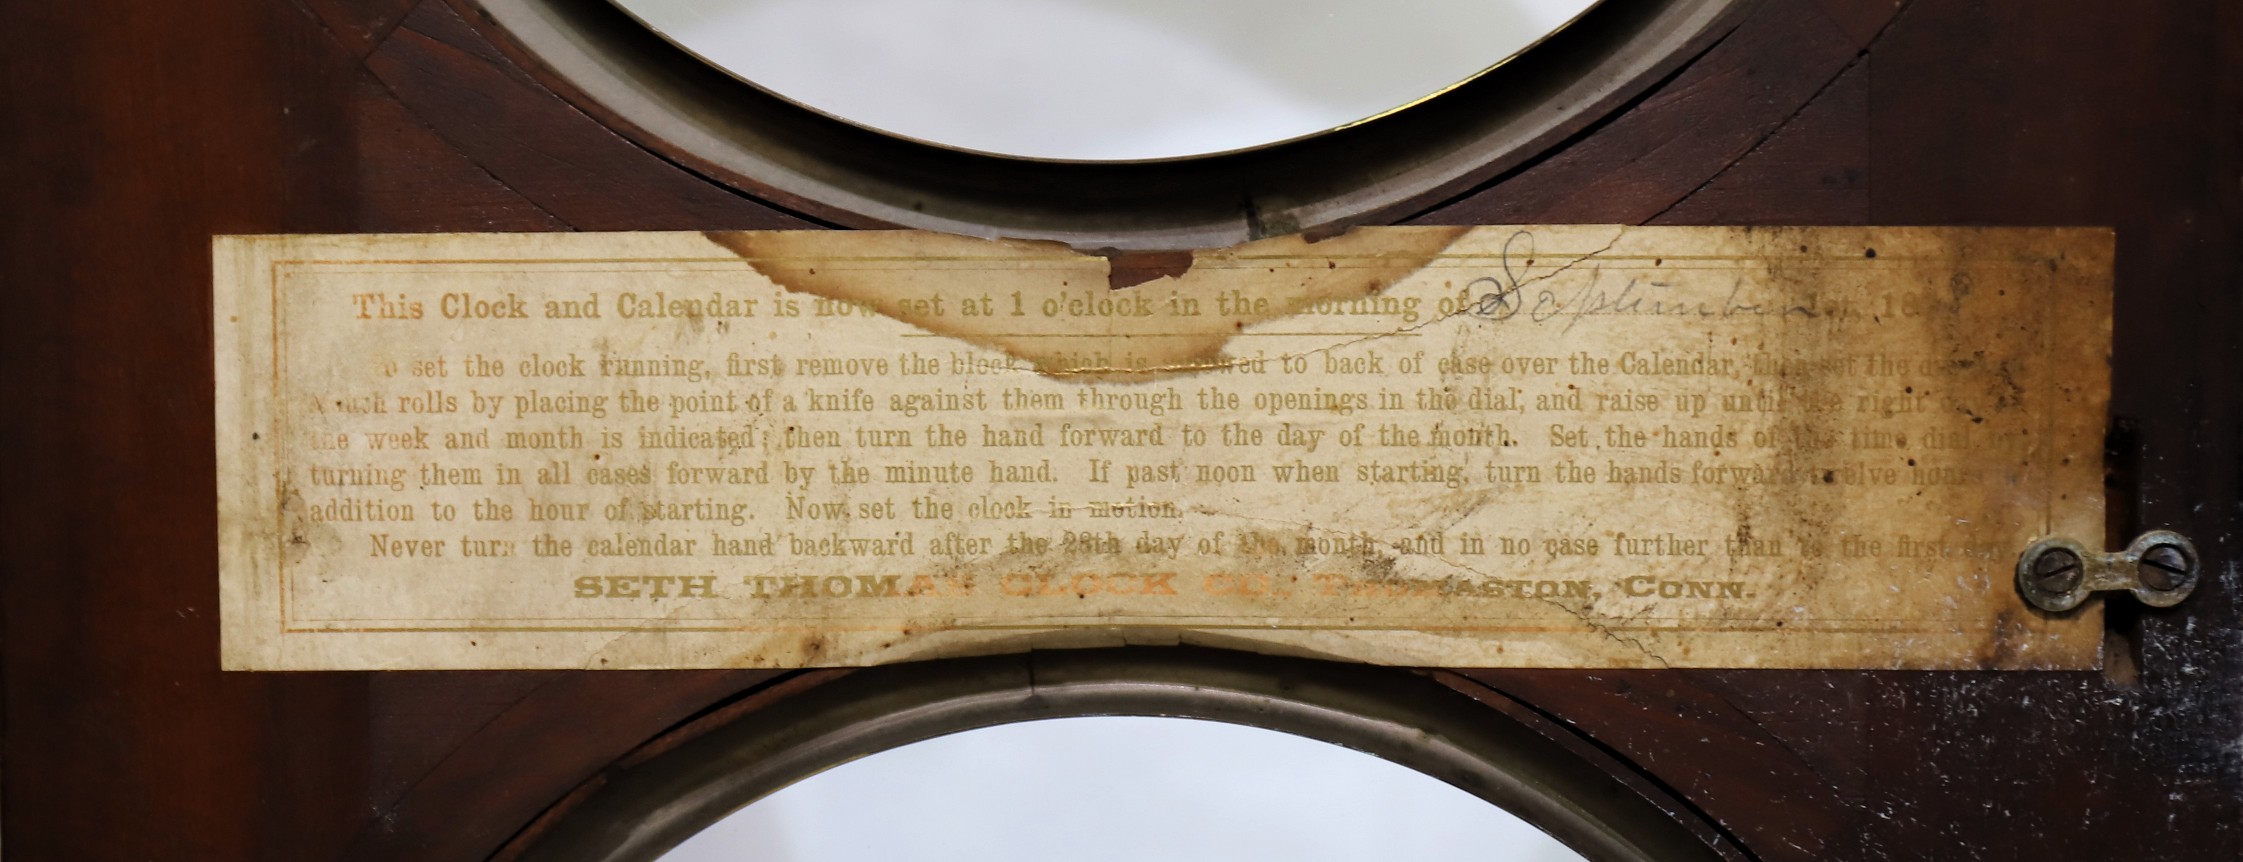 This Clock and Calendar is now set at 1 o'clock in the morning of September 1st, 18
set the clock running, first remove the block which is screwed to back of case over the Calendar, then set the
rolls by placing the point of a knife against them through the openings in the dial, and raise up until the right
the week and month is indicated; then turn the hand forward to the day of the month. Set the hands of the time dial by
turning them in all cases forward by the minute hand. If past noon when starting, turn the hands forward twelve hours
addition to the hour of starting. Now set the clock in motion.
Never turn the calendar hand backward after the 28th day of the month, and in no case further than to the first day.
SETH THOMAS CLOCK CO., THOMASTON, CONN.